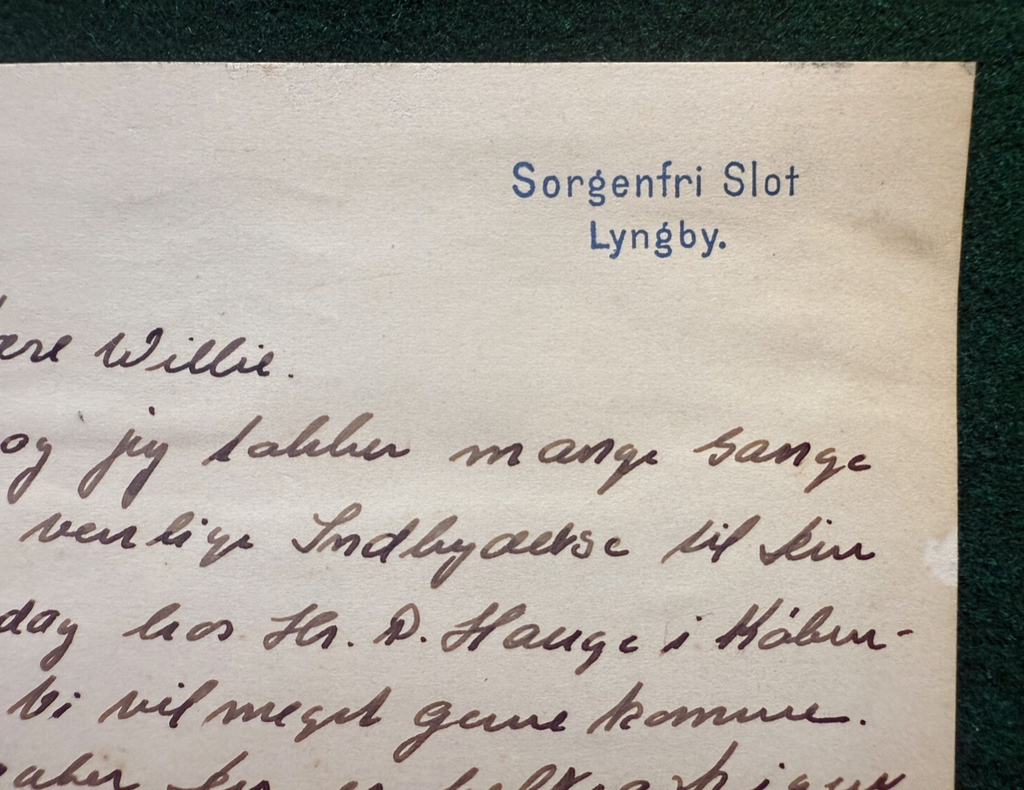 Sorgenfri Slot
Lyngby.
Willie.
og jeg takker mange Gange
venlige Indbydelse til
dag hos Hr. P. Hauge i Köben-
Vi vil meget gerne komme.